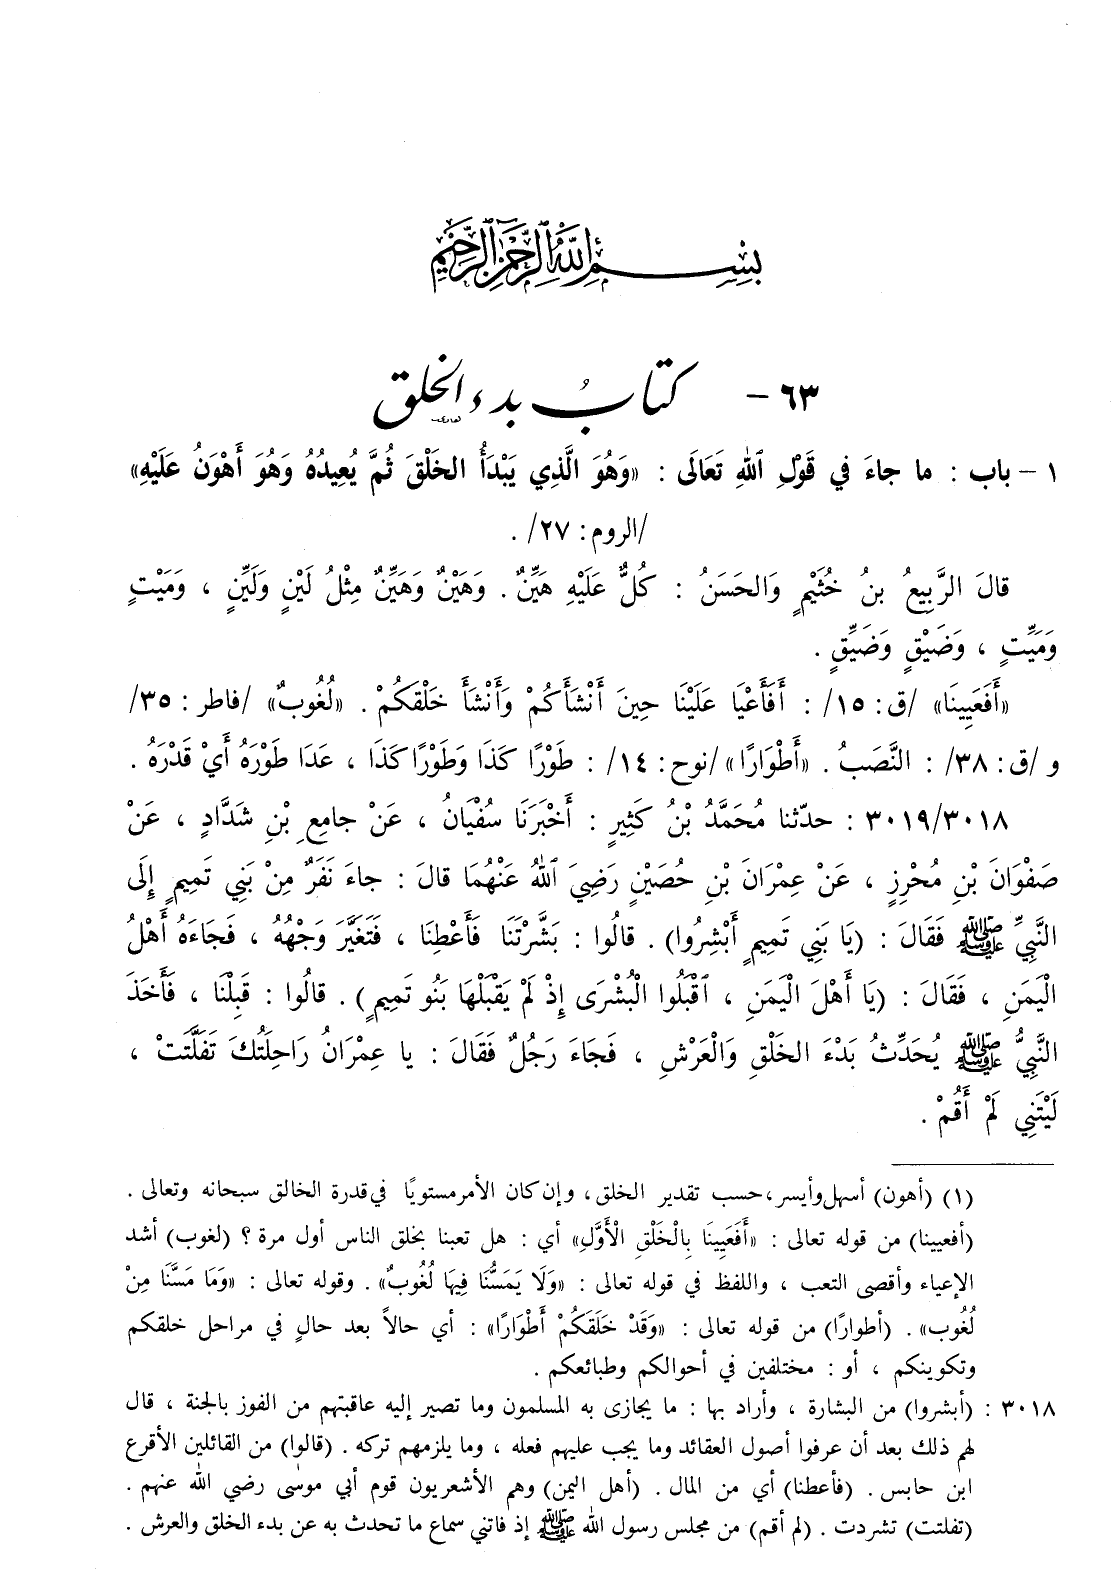 بِسْمِ اللَّهِ الرَّحْمَنِ الرَّحِيمِ
٦٣ - كتابُ بدء الخلق
١ - باب : ما جاءَ في قَوْلِ ٱللهِ تَعَالَى : «وَهُوَ الَّذِي يَبْدَأُ الخَلْقَ ثُمَّ يُعِيدُهُ وَهُوَ أَهْوَنُ عَلَيْهِ»
/الروم: ٢٧/ .
قالَ الرَّبِيعُ بنُ خُثَيْمٍ وَالحَسَنُ : كُلٌّ عَلَيْهِ هَيِّنٌ . وَهَيْنٌ وَهَيِّنٌ مِثْلُ لَيْنٍ وَلَيِّنٍ ، وَمَيْتٍ
وَمَيِّتٍ ، وَضَيْقٍ وَضَيِّقٍ .
«أَفَعَيِينَا» /ق: ١٥/ : أَفَأَعْيَا عَلَيْنَا حِينَ أَنْشَأَكُمْ وَأَنْشَأَ خَلْقَكُمْ . «لُغُوبٌ» /فاطر: ٣٥/
و /ق: ٣٨/ : النَّصَبُ . «أَطْوَارًا» /نوح: ١٤/ : طَوْرًا كَذَا وَطَوْرًا كَذَا ، عَدَا طَوْرَهُ أَيْ قَدْرَهُ .
٣٠١٩/٣٠١٨ : حدّثنا مُحَمَّدُ بْنُ كَثِيرٍ : أَخْبَرَنَا سُفْيَانُ ، عَنْ جامِعِ بْنِ شَدَّادٍ ، عَنْ
صَفْوَانَ بْنِ مُحْرِزٍ ، عَنْ عِمْرَانَ بْنِ حُصَيْنٍ رَضِيَ ٱللهُ عَنْهُمَا قالَ : جاءَ نَفَرٌ مِنْ بَنِي تَمِيمٍ إِلَى
النَّبِيِّ ﷺ فَقَالَ : (يَا بَنِي تَمِيمٍ أَبْشِرُوا) . قالُوا : بَشَّرْتَنَا فَأَعْطِنَا ، فَتَغَيَّرَ وَجْهُهُ ، فَجَاءَهُ أَهْلُ
الْيَمَنِ ، فَقَالَ : (يَا أَهْلَ الْيَمَنِ ، ٱقْبَلُوا الْبُشْرَى إِذْ لَمْ يَقْبَلْهَا بَنُو تَمِيمٍ) . قالُوا : قَبِلْنَا ، فَأَخَذَ
النَّبِيُّ ﷺ يُحَدِّثُ بَدْءَ الخَلْقِ وَالْعَرْشِ ، فَجَاءَ رَجُلٌ فَقَالَ : يا عِمْرَانُ رَاحِلَتُكَ تَفَلَّتَتْ ،
لَيْتَنِي لَمْ أَقُمْ .
(١) (أهون) أسهل وأيسر، حسب تقدير الخلق ، وإن كان الأمر مستويًا في قدرة الخالق سبحانه وتعالى .
(أفعيينا) من قوله تعالى : «أَفَعَيِينَا بِالْخَلْقِ الْأَوَّلِ» أي : هل تعبنا بخلق الناس أول مرة ؟ (لغوب) أشد
الإعياء وأقصى التعب ، واللفظ في قوله تعالى : «وَلَا يَمَسُّنَا فِيهَا لُغُوبٌ» . وقوله تعالى : «وَمَا مَسَّنَا مِنْ
لُغُوب» . (أطوارًا) من قوله تعالى : «وَقَدْ خَلَقَكُمْ أَطْوَارًا» : أي حالاً بعد حالٍ في مراحل خلقكم
وتكوينكم ، أو : مختلفين في أحوالكم وطبائعكم .
٣٠١٨ : (أبشروا) من البشارة ، وأراد بها : ما يجازى به المسلمون وما تصير إليه عاقبتهم من الفوز بالجنة ، قال
لهم ذلك بعد أن عرفوا أصول العقائد وما يجب عليهم فعله ، وما يلزمهم تركه . (قالوا) من القائلين الأقرع
ابن حابس . (فأعطنا) أي من المال . (أهل اليمن) وهم الأشعريون قوم أبي موسى رضي الله عنهم .
(تفلتت) تشردت . (لم أقم) من مجلس رسول الله ﷺ إذ فاتني سماع ما تحدث به عن بدء الخلق والعرش .